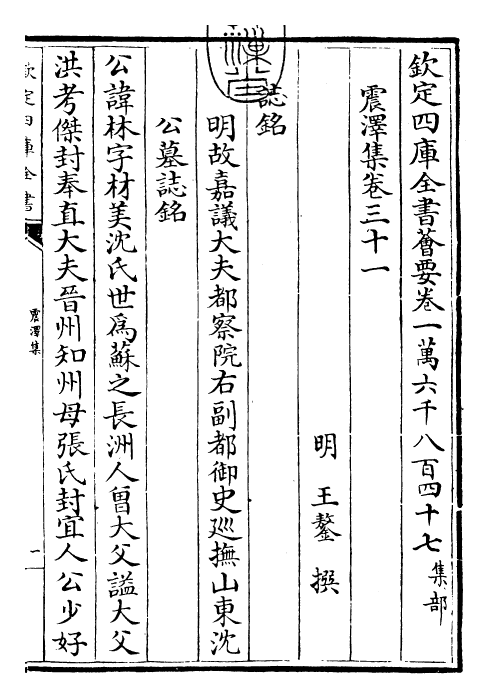 欽定四庫全書薈要卷一萬六千八百四十七集部
震澤集卷三十一
明 王鏊 撰
誌銘
明故嘉議大夫都察院右副都御史巡撫山東沈
公墓誌銘
公諱林字材美沈氏世爲蘇之長洲人曾大父謚大父
洪考傑封奉直大夫晉州知州母張氏封宜人公少好
欽定四庫全書
震澤集
一